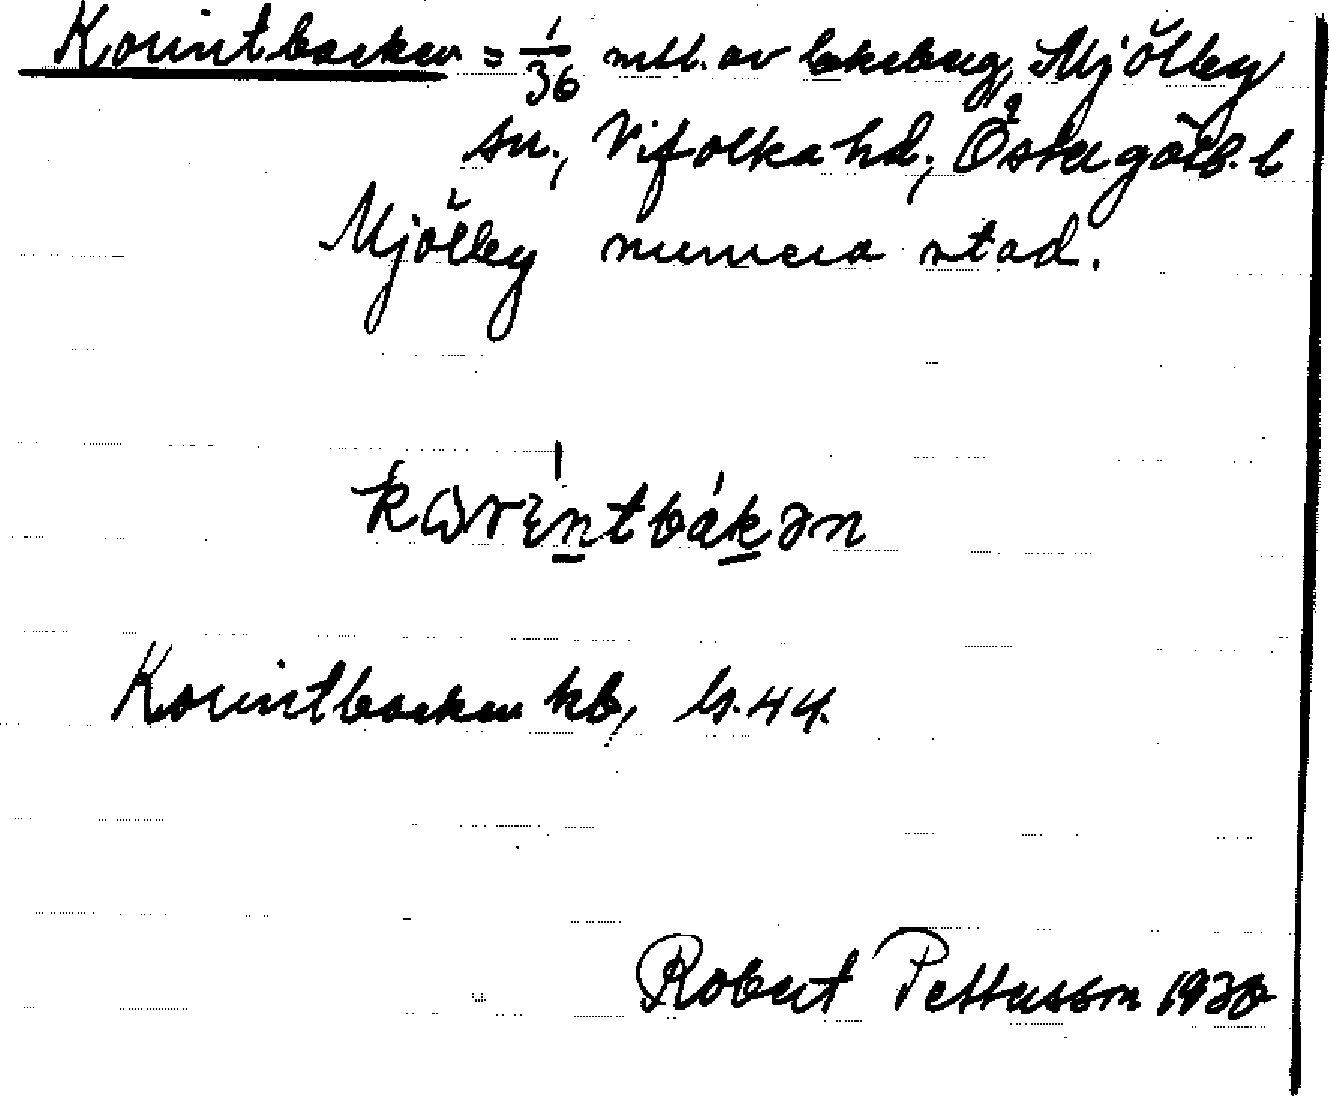 Korintbacken = 1/36 mtl. av Ekeberg, Mjölby
sn., Vifolka hd., Östergötl. l
Mjölby numera stad.
kωrıntbákən
Korintbacken kb,
Robert Pettersson 1930